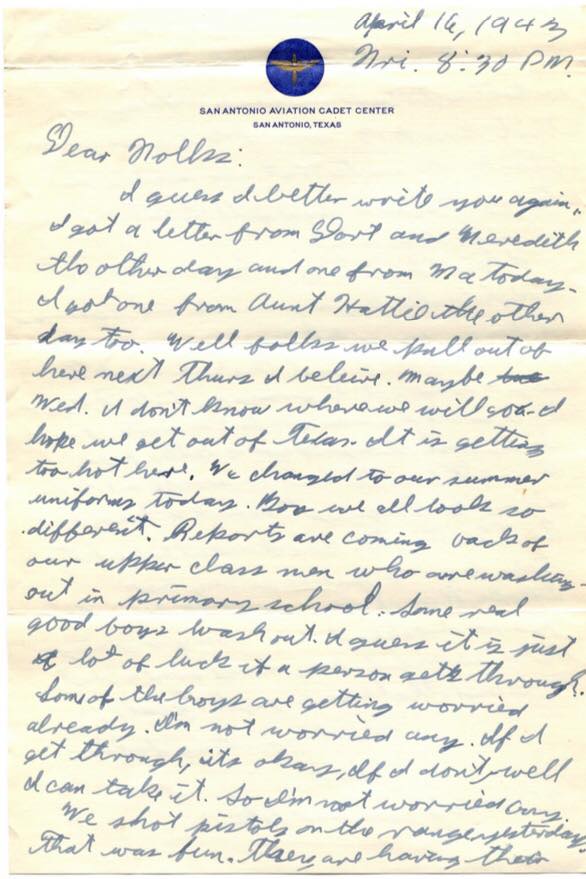 April 16, 1943
Fri. 8:30 P.M.
SAN ANTONIO AVIATION CADET CENTER
SAN ANTONIO, TEXAS
Dear Folks:
I guess I better write you again.
I got a letter from Dort and Meredith
the other day and one from Ma today.
I got one from Aunt Hattie the other
day too. Well folks we pull out of
here next Thurs I beleive. Maybe
Wed. I don't know where we will go. I
hope we get out of Texas. It is getting
too hot here. We changed to our summer
uniforms today. Boy we all look so
different. Reports are coming back of
our upper class men who are washing
out in primary school. Some real
good boys wash out. I guess it is just
a lot of luck if a person gets through.
Some of the boys are getting worried
already. I'm not worried any. If I
get through, its okay, If I don't well
I can take it. So I'm not worried any.
We shot pistols on the range yesterday.
That was fun. They are having their